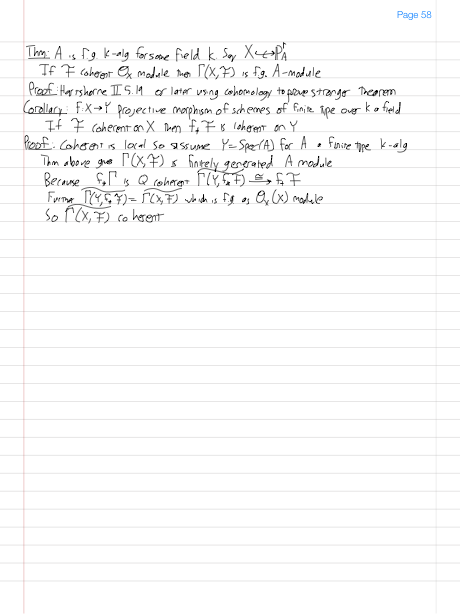 Page 58
Thm: A is f.g. k-alg for some field k. Say X ↪ ℙ^r_A
If ℱ coherent O_X module then Γ(X,ℱ) is f.g. A-module
Proof: Hartshorne II 5.19 or later using cohomology to prove stronger Theorem
Corollary: f: X→Y Projective morphism of schemes of finite type over k a field
If ℱ coherent on X then f_*ℱ is coherent on Y
Proof: Coherent is local so assume Y = Spec(A) for A a finite type k-alg
Thm above gives Γ(X,ℱ) is finitely generated A module
Because f_*Γ is Q coherent Γ(Y,f_*ℱ)~ ≅→ f_*ℱ
Further Γ(Y,f_*ℱ)~ = Γ(X,ℱ)~ which is f.g as O_X(X) module
So Γ(X,ℱ)~ coherent